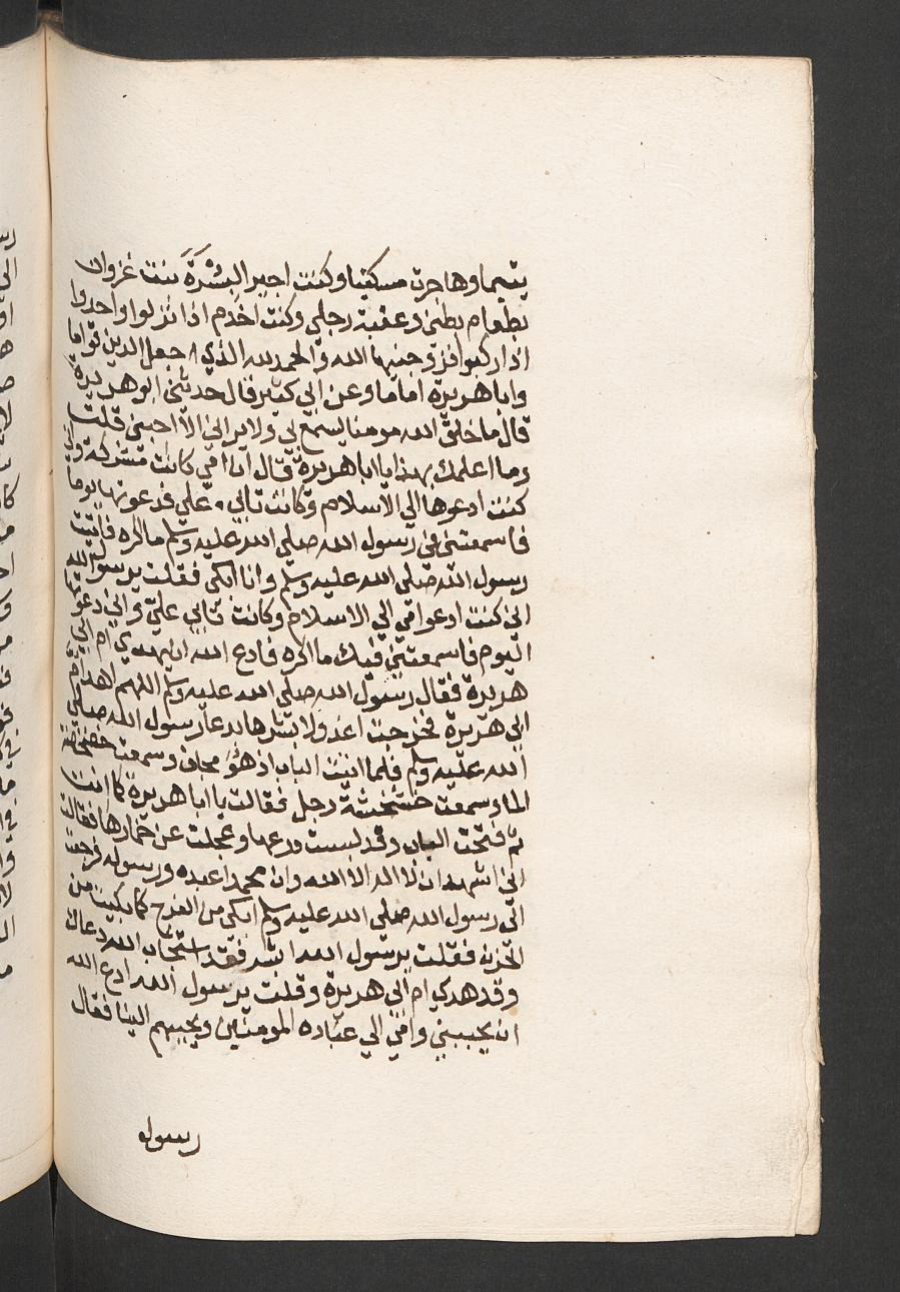 يتيما وهاجرت مسكينا وكنت اجير البشرة بنت غزوان
بطعام بطني وعقبة رجلي وكنت اخدم اذا نزلوا واحدوا
اذا ركبوا فزوجنيها الله والحمد لله الذي جعل الدين قواما
وابا هريرة اماما وعن ابي كثير قال حدثني ابو هريرة
قال ما خلق الله مومنا يسمع بي ولا يراني الا احبني قلت
وما اعلمك بهذا يا ابا هريرة قال ان امي كانت مشركة واني
كنت ادعوها الي الاسلام وكانت تابي علي فدعوتها يوما
فاسمعتني في رسول الله صلي الله عليه وسلم ما اكره فاتيت
رسول الله صلي الله عليه وسلم وانا ابكي فقلت يرسول الله
اني كنت ادعوا امي الي الاسلام وكانت تابي علي واني دعوتها
اليوم فاسمعتني فيك ما اكره فادع الله ان يهدي ام ابي
هريرة فقال رسول الله صلي الله عليه وسلم اللهم اهد ام
ابي هريرة فخرجت اعدو لابشرها بدعا رسول الله صلي
الله عليه وسلم فلما اتيت الباب اذ هو مجاف وسمعت خضخضة
الما وسمعت خشخشة رجل فقالت يا ابا هريرة كما انت
ثم فتحت الباب وقد لبست درعها وعجلت عن خمارها فقالت
اني اشهد ان لا اله الا الله وان محمدا عبده ورسوله فرجعت
الي رسول الله صلي الله عليه وسلم ابكي من الفرح كما بكيت من
الحزن فقلت يرسول الله ابشر فقد استجاب الله دعاك
وقد هدي ام ابي هريرة وقلت يرسول الله ادع الله
ان يحببني وامي الي عباده المومنين ويحببهم الينا فقال
رسول